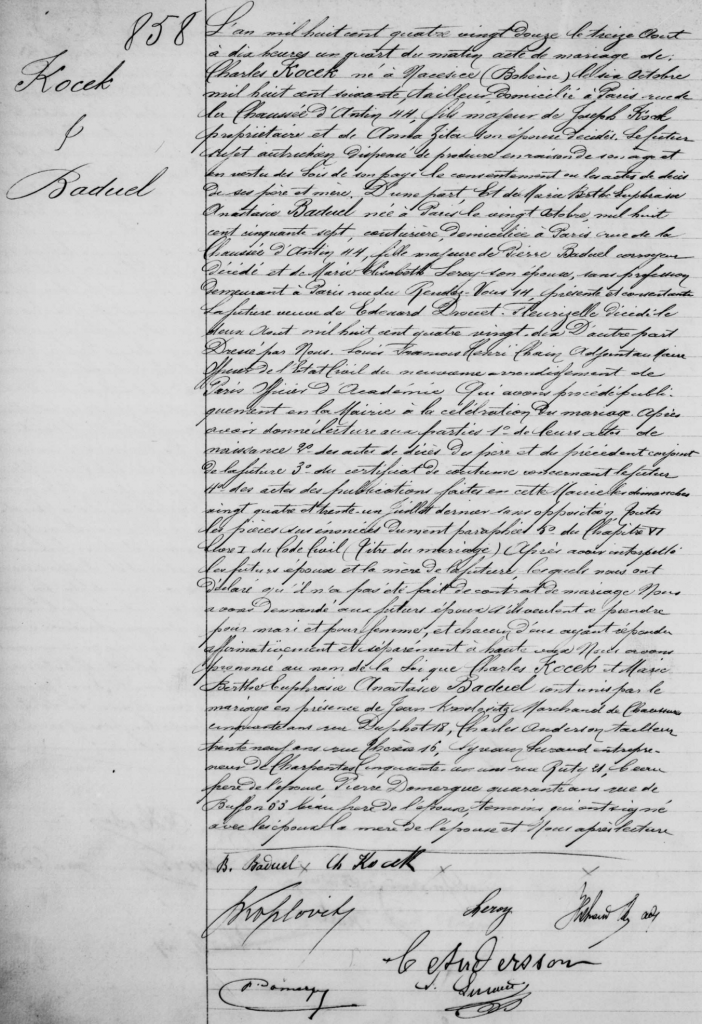 858
Kocek
&
Baduel
L'an mil huit cent quatre vingt douze le treize Aout
à dix heures un quart du matin acte de mariage de
Charles Kocek né à (Bohème) le six Octobre
mil huit cent soixante, tailleur, domicilié à Paris rue de
la Chaussée d'Antin 44, fils majeur de Joseph Kocek
propriétaire et de Anna Zita son épouse décédés. Le futur
sujet autrichien dispensé de produire en raison de son age et
en vertu des lois de son pays le consentement ou les actes de décès
de ses père et mère. D'une part, Et de Marie Berthe Euphrasie
Anastasie Baduel née à Paris le vingt Octobre mil huit
cent cinquante sept, couturière, domiciliée à Paris rue de la
Chaussée d'Antin 44, fille majeure de Pierre Baduel corroyeur
décédé et de Marie Elisabeth Leroy son épouse, sans profession
demeurant à Paris rue du Rendez-Vous 14, présente et consentante
La future veuve de Edouard Drouet décédé le
deux Aout mil huit cent quatre vingt dix D'autre part
Dressé par Nous. Louis François Henri Chain Adjoint au Maire
Officier de l'Etat Civil du neuvième arrondissement de
Paris Officier d'Académie Qui avons procédé publi-
quement en la Mairie à la célébration du mariage. Après
avoir donné lecture aux parties 1° de leurs actes de
naissance 2° des actes de décès du père et du précédent conjoint
de la future 3° du certificat de coutume concernant le futur
4° des actes des publications faites en cette Mairie les dimanches
vingt quatre et trente un Juillet dernier sans opposition toutes
les pièces sus énoncées dument paraphées 5° du Chapitre VI
livre I du Code Civil (titre du mariage) Après avoir interpellé
les futurs époux et la mère de la future lesquels nous ont
déclaré qu'il n'a pas été fait de contrat de mariage Nous
avons demandé aux futurs époux s'ils veulent se prendre
pour mari et pour femme, et chacun d'eux ayant répondu
affirmativement et séparément à haute voix Nous avons
prononcé au nom de la Loi que Charles Kocek et Marie
Berthe Euphrasie Anastasie Baduel sont unis par le
mariage en présence de Jean Marchand de Chaussures
cinquante ans rue Duphot 18, Charles Anderson tailleur
trente neuf ans rue Thérèse 16, Durand entrepre-
neur de Charpentes Cinquante un ans rue 21, beau
frère de l'épouse Pierre Domergue quarante ans rue de
Buffon 63 beau frère de l'épouse, témoins qui ont signé
avec les époux la mère de l'épouse et Nous après lecture
B. Baduel Ch Kocek
Leroy
C Andersson